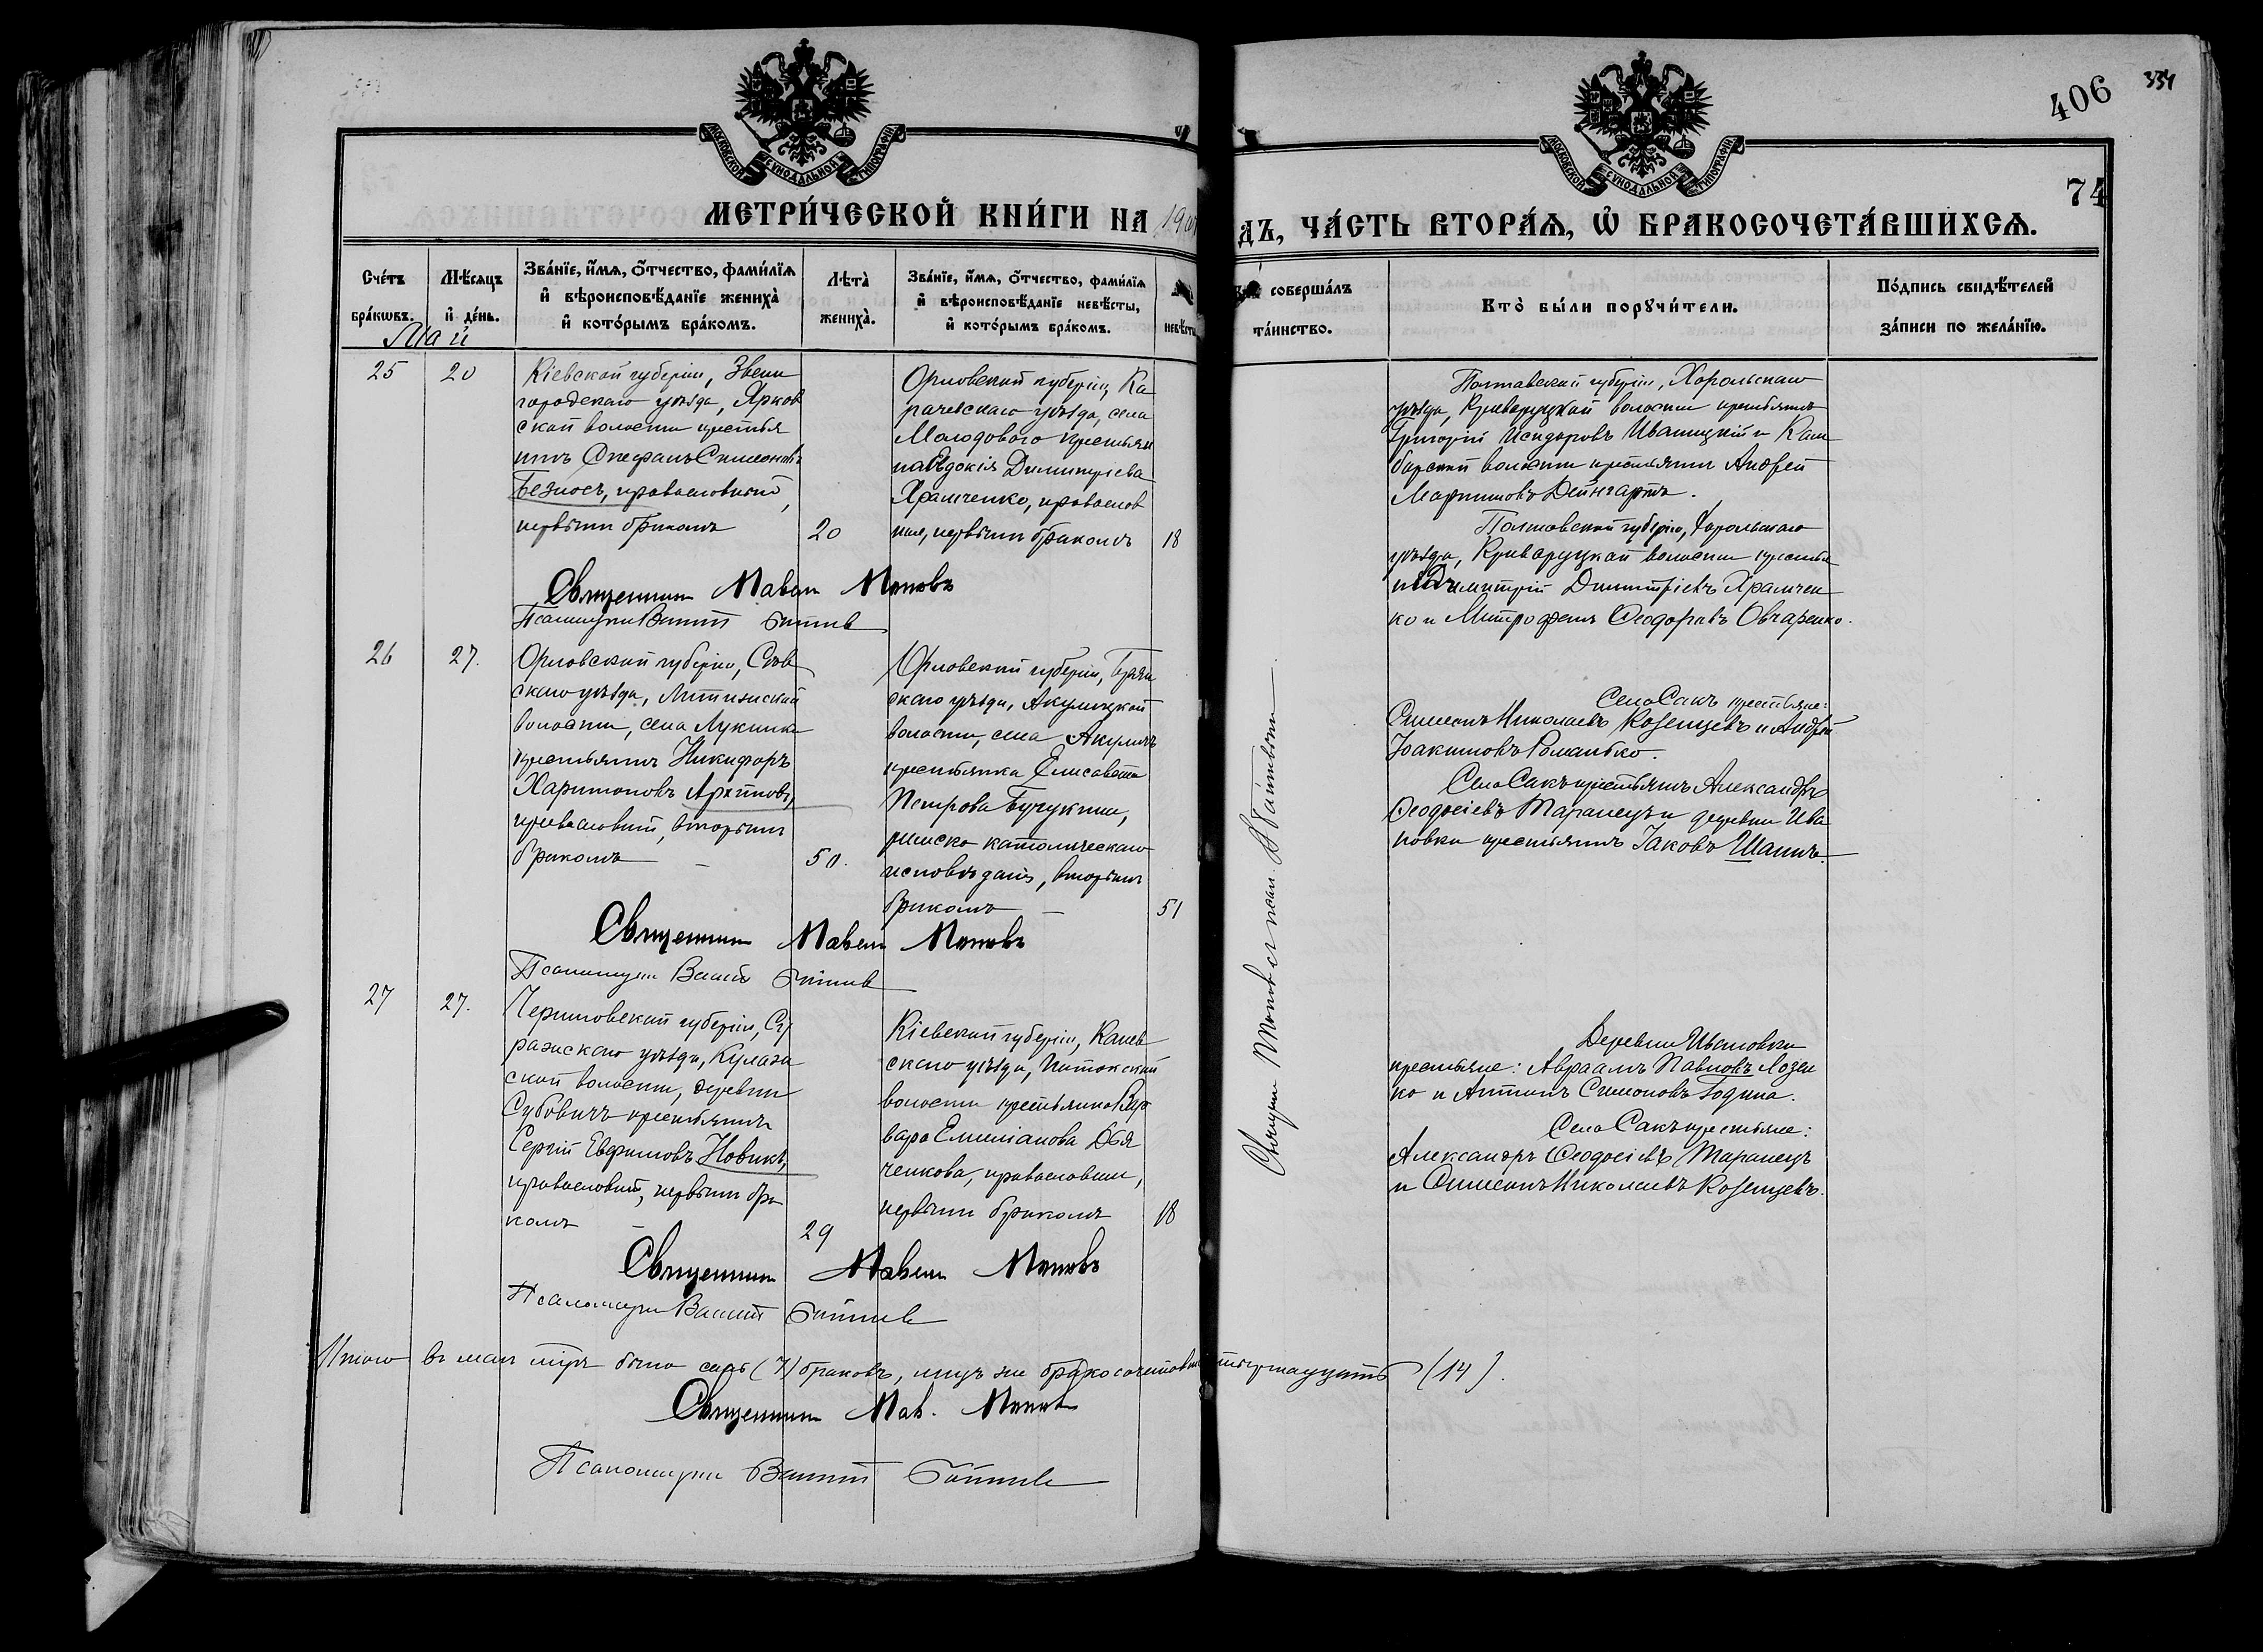 406 334
74
МОСКОВСКОЙ СѴНОДАЛЬНОЙ ТИПОГРАФІИ
МОСКОВСКОЙ СѴНОДАЛЬНОЙ ТИПОГРАФІИ
МЕТРИ́ЧЕСКОЙ КНИ́ГИ НА 190
ДЪ, ЧА́СТЬ ВТОРА́Ѧ, Ѽ БРАКОСОЧЕТА́ВШИХСѦ.
Сче́тъ бра́кωвъ.
Мѣ́сѧцъ и҆ де́нь.
Зва́нїе, и҆́мѧ, ѻ҆́тчество, фами́лїѧ
и҆ вѣроисповѣ́данїе жениха̀
и҆ кото́рымъ бра́комъ.
Лѣта̀
жениха̀.
Зва́нїе, и҆́мѧ, ѻ҆́тчество, фами́лїѧ
и҆ вѣроисповѣ́данїе невѣ́сты,
и҆ кото́рымъ бра́комъ.
невѣ́сты
соверша́лъ
та́инство.
Кто̀ бы́ли порꙋчи́тели.
По́дпись свидѣ́телей
за́писи по жела́нїю.
Май
25 20
Кіевской губерніи, Звени
городскаго уѣзда, Ярков
ской волости крестья
нинъ Стефанъ Симеоновъ
Безносъ, православный,
первымъ бракомъ
20
Орловской губерніи, Ка
рачевскаго уѣзда, села
Молодового крестьян
ка Евдокія Димитріева
Храмченко, православ
ная, первымъ бракомъ
18
Полтавской губерніи, Хорольскаго
уѣзда, Криворудской волости крестьянинъ
Григорій Исидоровъ Иваницкій и Кан
барской волости крестьянинъ Андрей
Мартиновъ Дейнгартъ.
Полтавской губерніи, Хорольскаго
уѣзда, Криворудской волости крестья
не Димитрій Димитріевъ Храмчен
ко и Митрофанъ Ѳеодоровъ Овчаренко.
Священникъ Павелъ Поповъ
Псаломщикъ
26 27.
Орловской губерніи, Сѣв
скаго уѣзда, Литижской
волости, села Лукинка
крестьянинъ Никифоръ
Харитоновъ Архиповъ,
православный, вторымъ
бракомъ —
50.
Орловской губерніи, Брян
скаго уѣзда, Акулицкой
волости, села Акуличъ
крестьянка Елисавета
Петрова Бучукина,
римско католическаго
исповѣданія, вторымъ
бракомъ —
51
Село Сакъ крестьяне:
Симеонъ Николаевъ Козенцевъ и Андрей
Іоакимовъ Романько.
Село Сакъ крестьянинъ Александръ
Ѳеодосіевъ Таранецъ и деревни Ива
новки крестьянинъ Іаковъ Шапинъ.
Священникъ Павелъ Поповъ
Псаломщикъ
27 27.
Черниговской губерніи, Су
ражскаго уѣзда, Кулаж
ской волости, деревни
Субовичъ крестьянинъ
Сергій Евфимовъ Новикъ,
православный, первымъ бра
комъ —
29
Кіевской губерніи, Канев
скаго уѣзда, Потокской
волости крестьянка Вар
вара Емиліанова Дья
ченкова, православная,
первымъ бракомъ
18
Деревни Ивановки
крестьяне: Авраамъ Павловъ Лозен
ко и Антонъ Симоновъ Година.
Село Сакъ крестьяне:
Александръ Ѳеодосіевъ Таранецъ
и Симеонъ Николаевъ Козенцевъ.
Священникъ Павелъ Поповъ
Псаломщикъ
Итого въ маѣ мѣс. было семь (7) браковъ, лицъ же бракосочетавш четырнадцать (14).
Священникъ Пав. Поповъ
Псаломщикъ